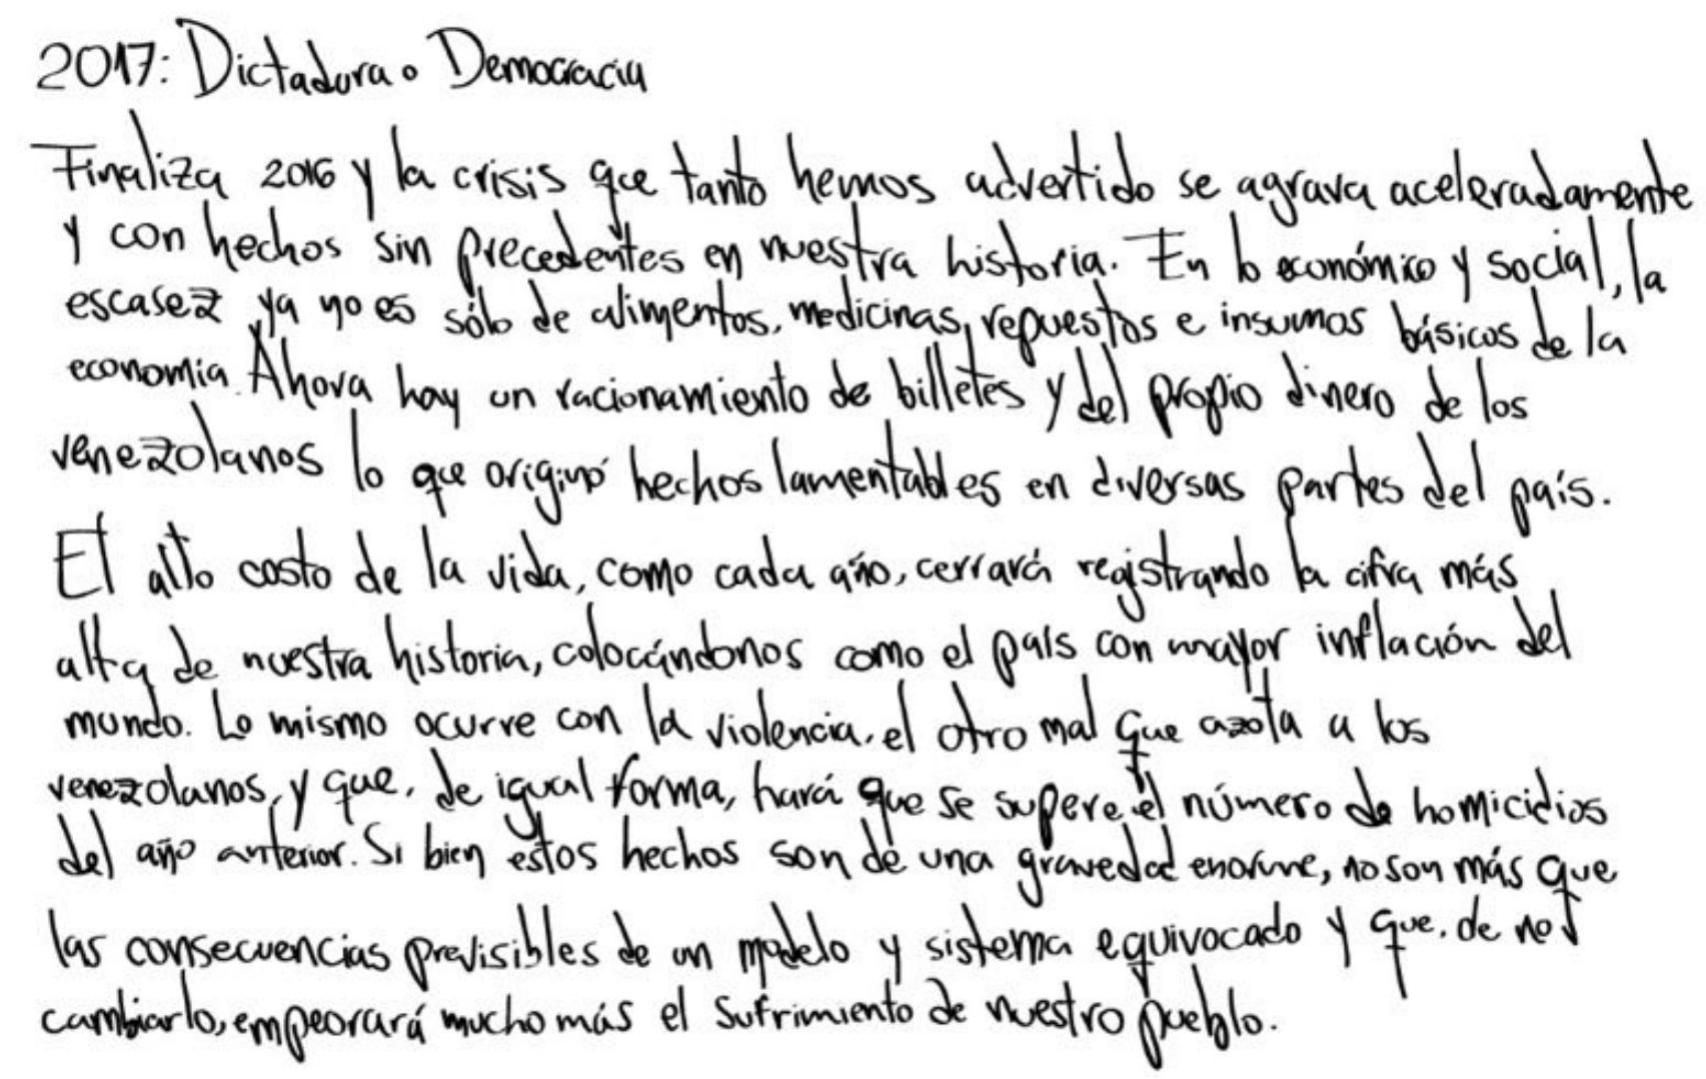 2017: Dictadura o Democracia
Finaliza 2016 y la crisis que tanto hemos advertido se agrava aceleradamente
y con hechos sin precedentes en nuestra historia. En lo económico y social, la
escasez ya no es sólo de alimentos, medicinas, repuestos e insumos básicos de la
economía. Ahora hay un racionamiento de billetes y del propio dinero de los
venezolanos lo que originó hechos lamentables en diversas partes del país.
El alto costo de la vida, como cada año, cerrará registrando la cifra más
alta de nuestra historia, colocándonos como el país con mayor inflación del
mundo. Lo mismo ocurre con la violencia, el otro mal que azota a los
venezolanos, y que, de igual forma, hará que se supere el número de homicidios
del año anterior. Si bien estos hechos son de una gravedad enorme, no son más que
las consecuencias previsibles de un modelo y sistema equivocado y que, de no
cambiarlo, empeorará mucho más el sufrimiento de nuestro pueblo.